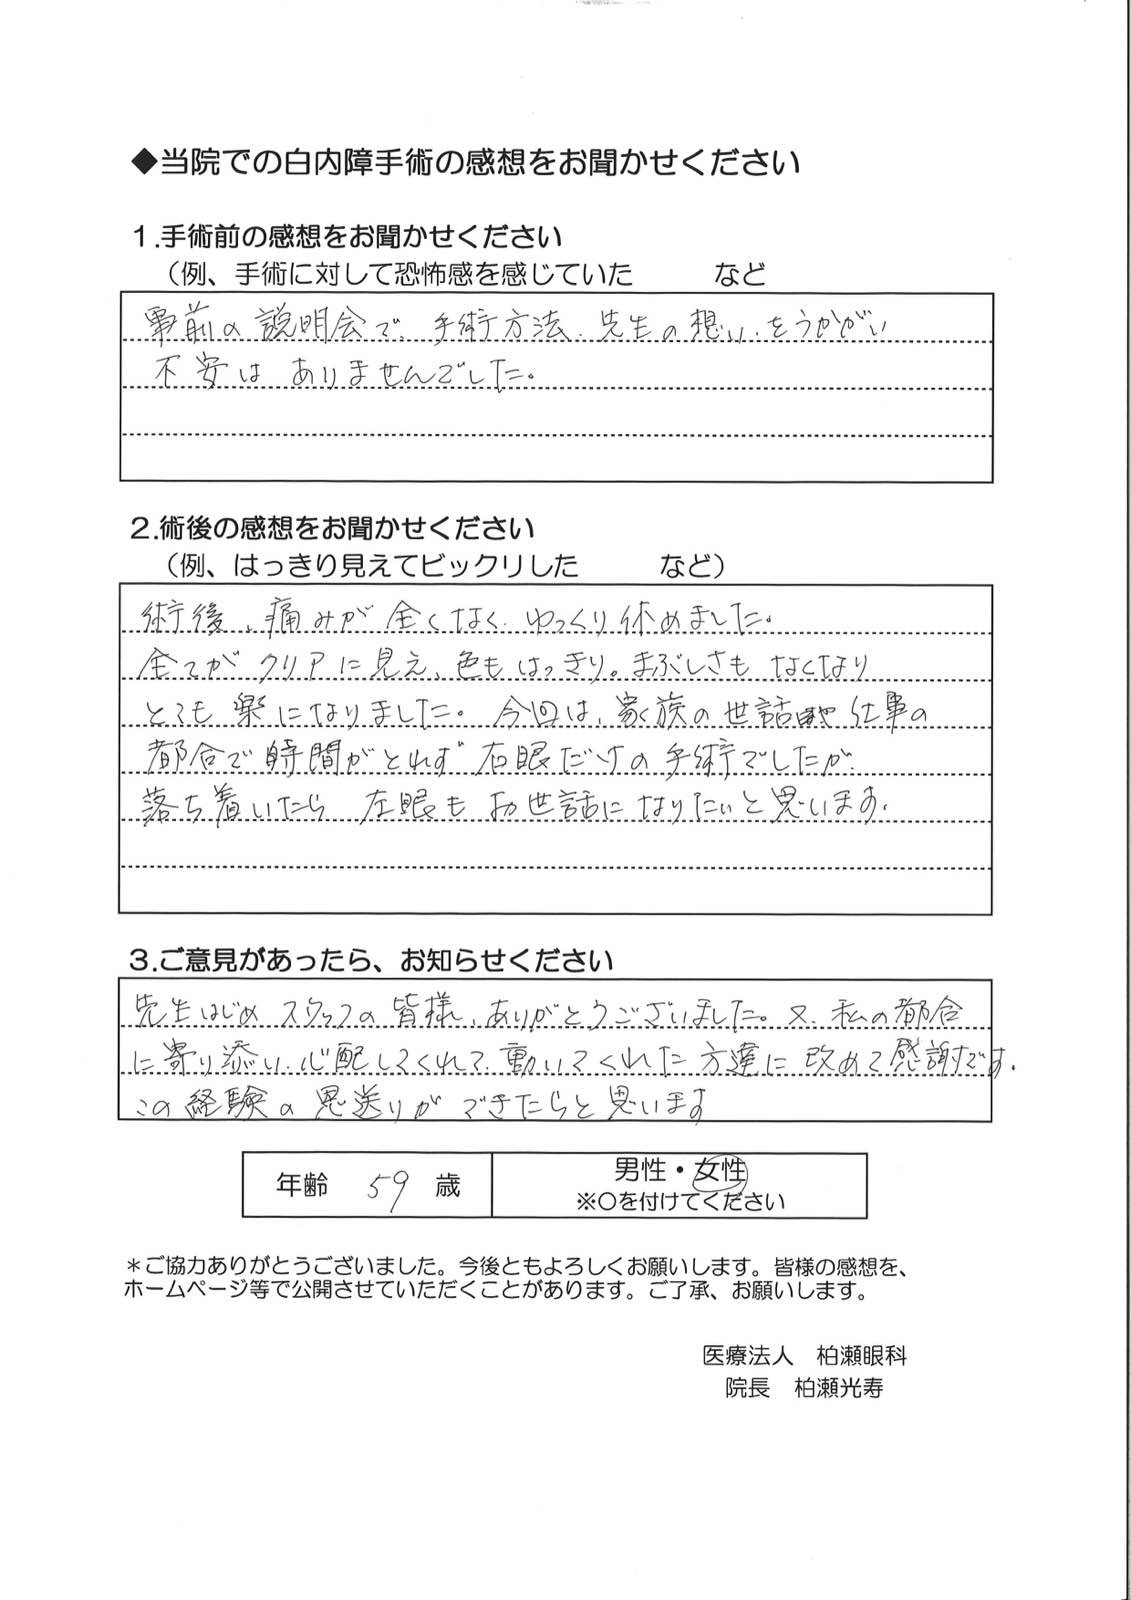 ◆当院での白内障手術の感想をお聞かせください
1.手術前の感想をお聞かせください
（例、手術に対して恐怖感を感じていた　　　など
事前の説明会で、手術方法、先生の想いをうかがい
不安は ありませんでした。
2.術後の感想をお聞かせください
（例、はっきり見えてビックリした　　　など）
術後、痛みが 全くなく、ゆっくり休めました。
全てが クリアに見え、色もはっきり。まぶしさも なくなり
とても 楽になりました。 今回は、家族の世話や 仕事の
都合で時間がとれず 右眼だけの 手術でしたが、
落ち着いたら 左眼も お世話になりたいと思います。
3.ご意見があったら、お知らせください
先生はじめ スタッフの 皆様、ありがとうございました。又、私の都合
に寄り添い、心配してくれて、動いてくれた 方達に 改めて感謝です。
この 経験の 恩送りが できたらと 思います
年齢　59　歳
男性・女性
※○を付けてください
＊ご協力ありがとうございました。今後ともよろしくお願いします。皆様の感想を、
ホームページ等で公開させていただくことがあります。ご了承、お願いします。
医療法人　柏瀬眼科
院長　柏瀬光寿